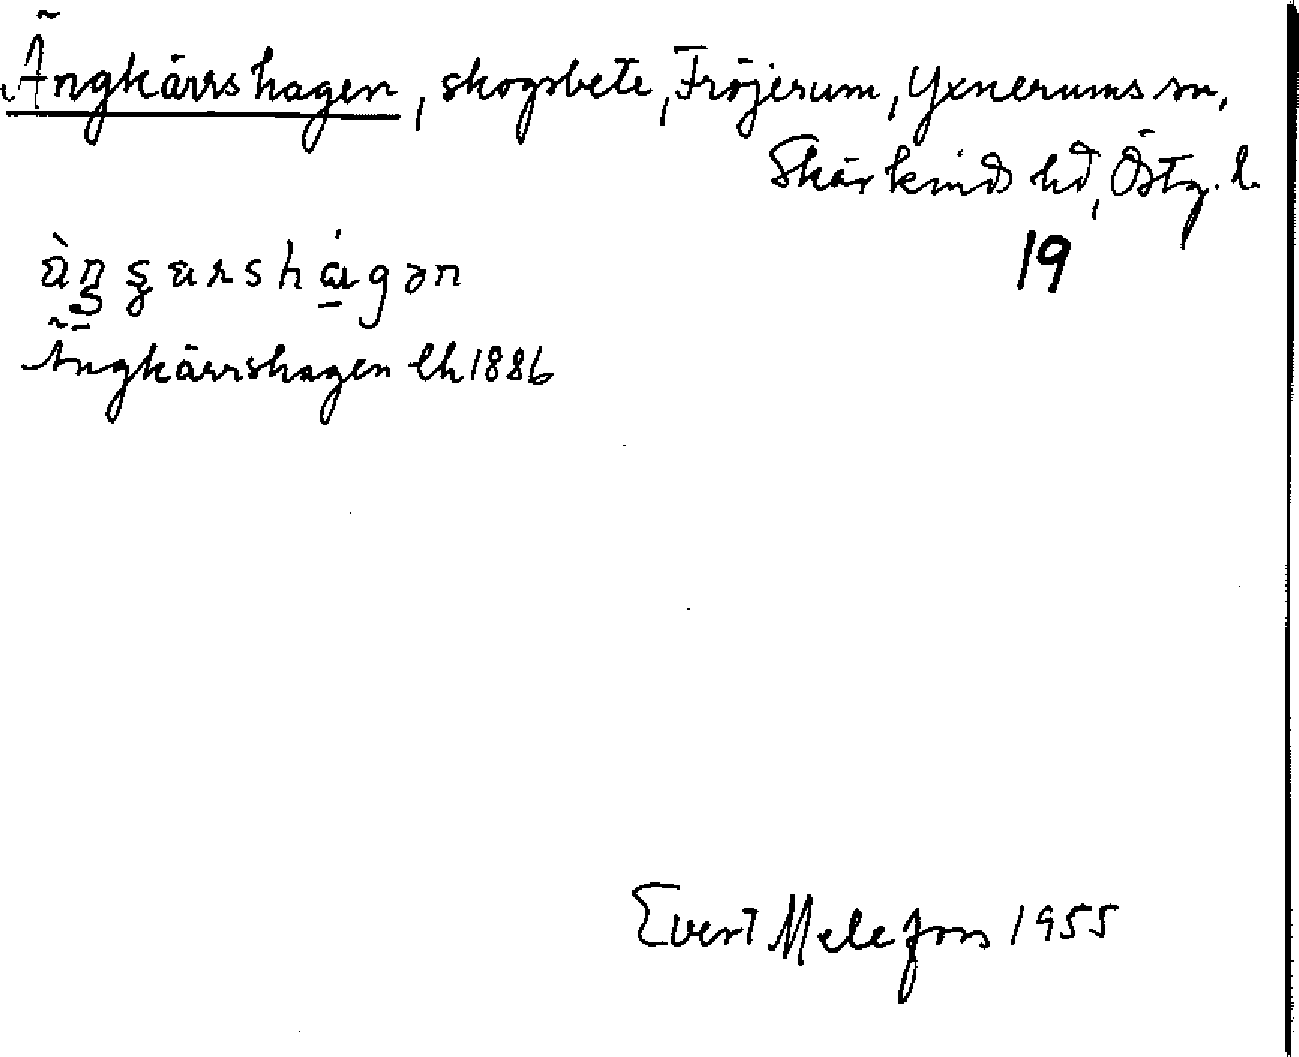 Ängkärrshagen, skogsbete, Fröjerum, Yxnerums sn,
Skärkind hd, Östg. l.
19
Ängkärrshagen lh 1886
Evert Melefors 1955